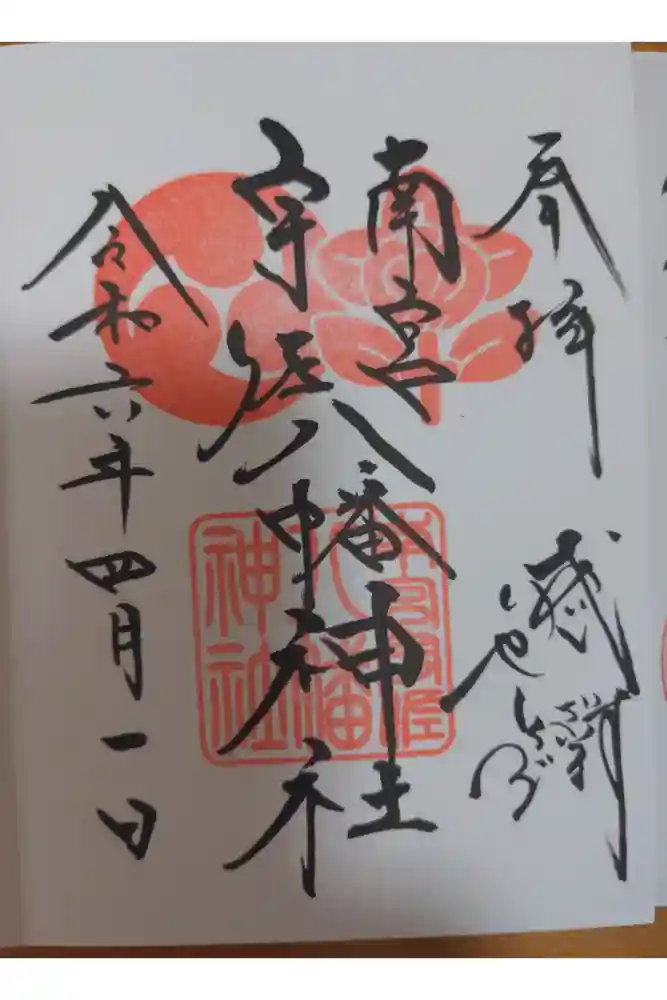 奉拝
南宮
宇佐八幡神社
令和六年四月一日
八幡
神社